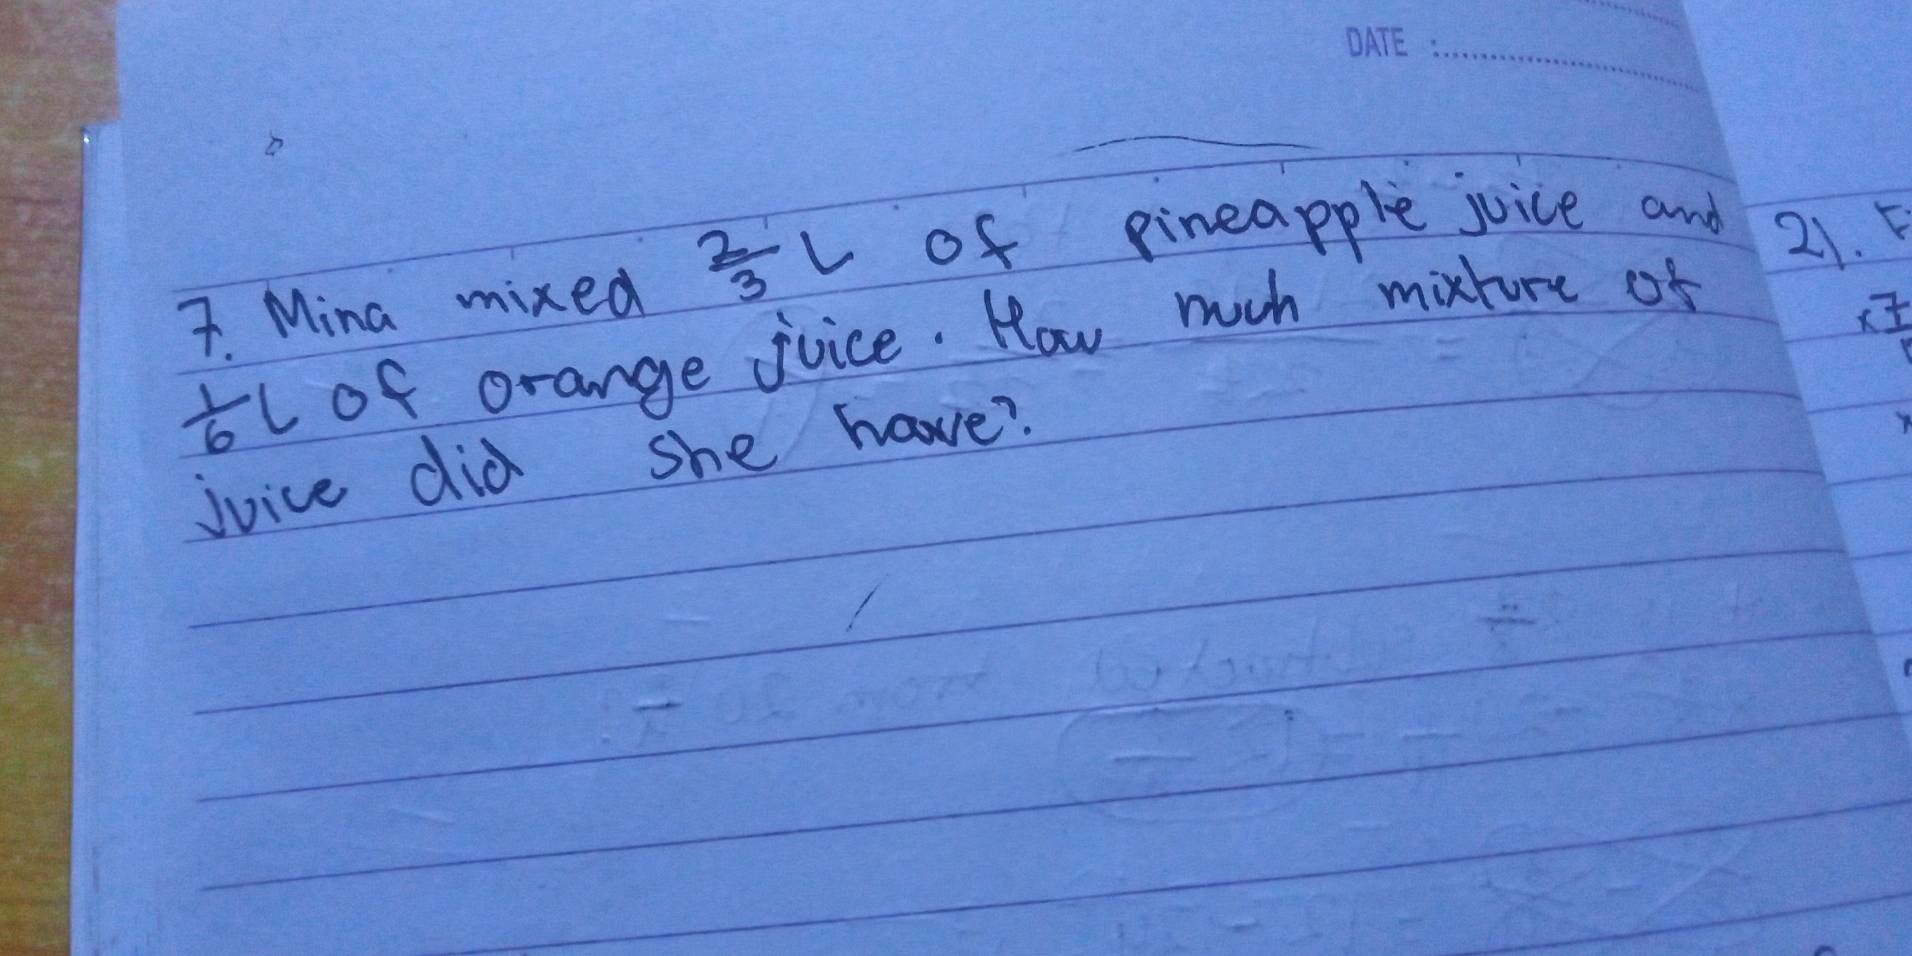 DATE :
7. Mina mixed 2/3 L of pineapple juice and
1/6 L of orange juice. How much mixture of
juice did she have?
21.